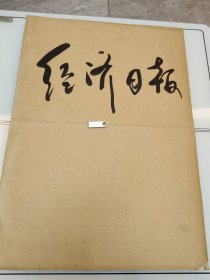 经济日报